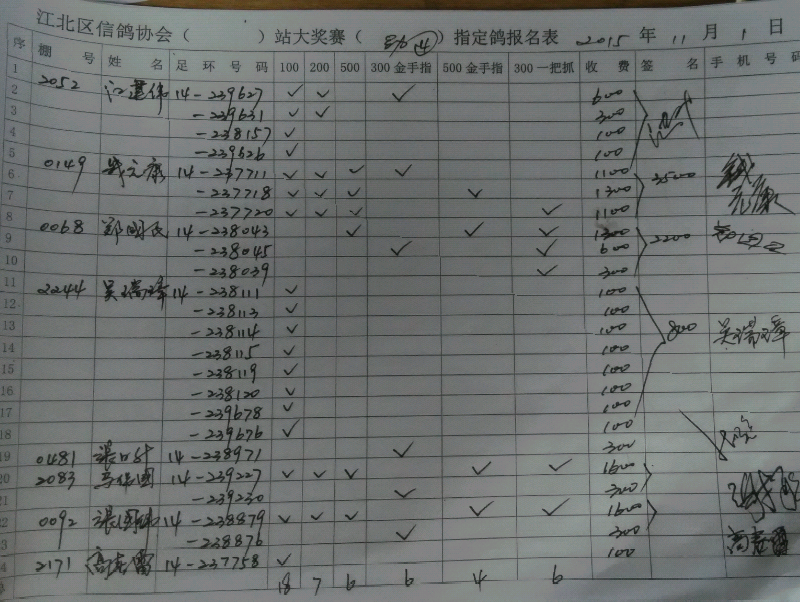 江北区信鸽协会（ ）站大奖赛（ ）指定鸽报名表 2015 年 11 月 1 日
序 棚 号 姓 名 足 环 号 码 100 200 500 300金手指 500金手指 300一把抓 收 费 签 名 手 机 号 码
1
2 2052 江 14-239627 ✓ ✓ ✓ 600
3 -239631 ✓ ✓ 300
4 -238157 ✓ 100
5 -239626 ✓ 100
6 0149 钱元康 14-237711 ✓ ✓ ✓ ✓ 1100 3500 钱元康
7 -237718 ✓ ✓ ✓ ✓ 1300
8 -237720 ✓ ✓ ✓ ✓ 1100
9 0068 郑国民 14-238043 ✓ ✓ ✓ 1300 2200
10 -238045 ✓ ✓ 600
-238039 ✓ 300
11 2244 吴瑞璋 14-238111 ✓ 100
12 -238113 ✓ 100
13 -238114 ✓ 100 800 吴瑞璋
14 -238115 ✓ 100
15 -238119 ✓ 100
16 -238120 ✓ 100
17 -239678 ✓ 100
18 -239676 ✓ 100
19 0481 14-238971 ✓ 300
20 2083 14-239227 ✓ ✓ ✓ ✓ ✓ 1600
21 -239230 ✓ 300
22 0092 张国 14-238879 ✓ ✓ ✓ ✓ ✓ 1600
3 -238876 ✓ 300
4 2171 高 14-237758 ✓ 100
18 7 6 6 4 6